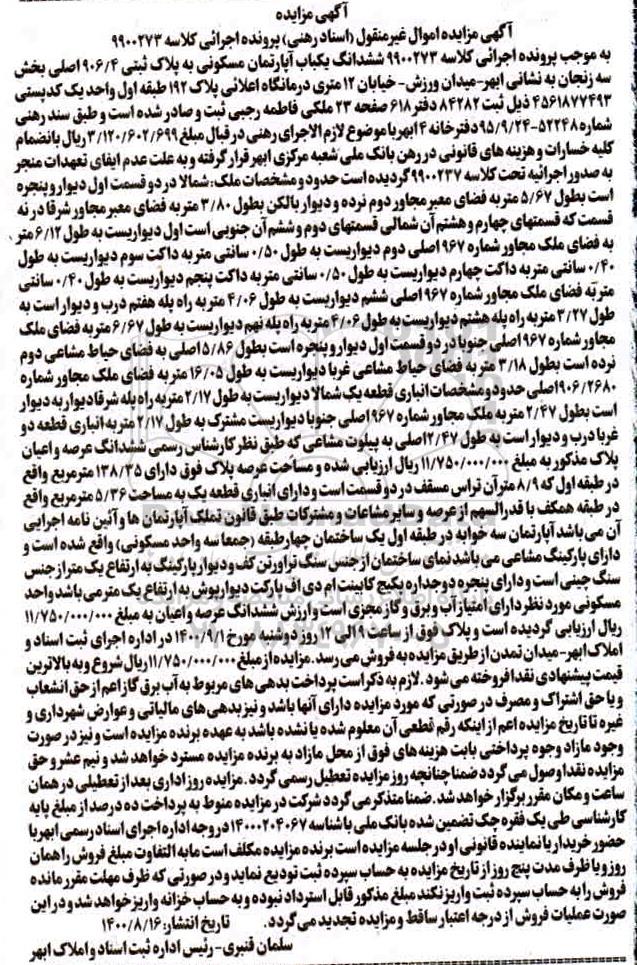 آگهی مزایده
آگهی مزایده اموال غیرمنقول (اسناد رهنی) پرونده اجرائی کلاسه ۹۹۰۰۲۷۳
به موجب پرونده اجرائی کلاسه ۹۹۰۰۲۷۳ ششدانگ یکباب آپارتمان مسکونی به پلاک ثبتی ۹۰۶/۴ اصلی بخش
سه زنجان به نشانی ابهر-میدان ورزش- خیابان ۱۲ متری درمانگاه اعلائی پلاک ۱۹۲ طبقه اول واحد یک کدپستی
۴۵۶۱۸۷۷۴۹۳ ذیل ثبت ۸۴۲۸۲ دفتر ۶۱۸ صفحه ۲۳ ملکی فاطمه رجبی ثبت و صادر شده است و طبق سند رهنی
شماره ۵۲۲۴۸-۹۵/۹/۲۴ دفترخانه ۴ ابهر با موضوع لازم الاجرای رهنی در قبال مبلغ ۳/۱۲۰/۶۰۲/۶۹۹ ریال بانضمام
کلیه خسارات و هزینه های قانونی در رهن بانک ملی شعبه مرکزی ابهر قرار گرفته و به علت عدم ایفای تعهدات منجر
به صدور اجرائیه تحت کلاسه ۹۹۰۰۲۳۷ گردیده است حدود و مشخصات ملک: شمالا در دو قسمت اول دیوار و پنجره
است بطول ۵/۶۷ متر به فضای معبر مجاور دوم نرده و دیوار بالکن بطول ۳/۸۰ متر به فضای معبر مجاور شرقا در نه
قسمت که قسمتهای چهارم و هشتم آن شمالی قسمتهای دوم و ششم آن جنوبی است اول دیواریست به طول ۶/۱۲ متر
به فضای ملک مجاور شماره ۹۶۷ اصلی دوم دیواریست به طول ۰/۵۰ سانتی متر به داکت سوم دیواریست به طول
۰/۴۰ سانتی متر به داکت چهارم دیواریست به طول ۰/۵۰ سانتی متر به داکت پنجم دیواریست به طول ۰/۴۰ سانتی
متر به فضای ملک مجاور شماره ۹۶۷ اصلی ششم دیواریست به طول ۴/۰۶ متر به راه پله هفتم درب و دیوار است به
طول ۳/۲۷ متر به راه پله هشتم دیواریست به طول ۴/۰۶ متر به راه پله نهم دیواریست به طول ۶/۶۷ متر به فضای ملک
مجاور شماره ۹۶۷ اصلی جنوبا در دو قسمت اول دیوار و پنجره است بطول ۵/۸۶ اصلی به فضای حیاط مشاعی دوم
نرده است بطول ۳/۱۸ متر به فضای حیاط مشاعی غربا دیواریست به طول ۱۶/۰۵ متر به فضای ملک مجاور شماره
۹۰۶/۲۶۸۰ اصلی حدود و مشخصات انباری قطعه یک شمالا دیواریست به طول ۲/۱۷ متر به راه پله شرقا دیوار به دیوار
است بطول ۲/۴۷ متر به ملک مجاور شماره ۹۶۷ اصلی جنوبا دیواریست مشترک به طول ۲/۱۷ متر به انباری قطعه دو
غربا درب و دیوار است به طول ۲/۴۷ اصلی به پیلوت مشاعی که طبق نظر کارشناس رسمی ششدانگ عرصه و اعیان
پلاک مذکور به مبلغ ۱۱/۷۵۰/۰۰۰/۰۰۰ ریال ارزیابی شده و مساحت عرصه پلاک فوق دارای ۱۳۸/۳۵ مترمربع واقع
در طبقه اول که ۸/۹ متر آن تراس مسقف در دو قسمت است و دارای انباری قطعه یک به مساحت ۵/۳۶ مترمربع واقع
در طبقه همکف با قدرالسهم از عرصه و سایر مشاعات و مشترکات طبق قانون تملک آپارتمان ها و آئین نامه اجرایی
آن می باشد آپارتمان سه خوابه در طبقه اول یک ساختمان چهارطبقه (جمعا سه واحد مسکونی) واقع شده است و
دارای پارکینگ مشاعی می باشد نمای ساختمان از جنس سنگ تراورتن کف و دیوار پارکینگ به ارتفاع یک متر از جنس
سنگ چینی است و دارای پنجره دوجداره پکیج کابینت ام دی اف پارکت دیوارپوش به ارتفاع یک متر می باشد واحد
مسکونی مورد نظر دارای امتیاز آب و برق و گاز مجزی است و ارزش ششدانگ عرصه و اعیان به مبلغ ۱۱/۷۵۰/۰۰۰/۰۰۰
ریال ارزیابی گردیده است و پلاک فوق از ساعت ۹ الی ۱۲ روز دوشنبه مورخ ۱۴۰۰/۹/۱ در اداره اجرای ثبت اسناد و
املاک ابهر- میدان تمدن از طریق مزایده به فروش می رسد. مزایده از مبلغ ۱۱/۷۵۰/۰۰۰/۰۰۰ ریال شروع و به بالاترین
قیمت پیشنهادی نقدا فروخته می شود. لازم به ذکر است پرداخت بدهی های مربوط به آب برق گاز اعم از حق انشعاب
و یا حق اشتراک و مصرف در صورتی که مورد مزایده دارای آنها باشد و نیز بدهی های مالیاتی و عوارض شهرداری و
غیره تا تاریخ مزایده اعم از اینکه رقم قطعی آن معلوم شده یا نشده باشد به عهده برنده مزایده است و نیز در صورت
وجود مازاد وجوه پرداختی بابت هزینه های فوق از محل مازاد به برنده مزایده مسترد خواهد شد و نیم عشر و حق
مزایده نقدا وصول می گردد ضمنا چنانچه روز مزایده تعطیل رسمی گردد. مزایده روز اداری بعد از تعطیلی در همان
ساعت و مکان مقرر برگزار خواهد شد. ضمنا متذکر می گردد شرکت در مزایده منوط به پرداخت ده درصد از مبلغ پایه
کارشناسی طی یک فقره چک تضمین شده بانک ملی با شناسه ۱۴۰۰۰۲۰۴۰۶۷ در وجه اداره اجرای اسناد رسمی ابهر با
حضور خریدار یا نماینده قانونی او در جلسه مزایده است برنده مزایده مکلف است مابه التفاوت مبلغ فروش را همان
روز و یا ظرف مدت پنج روز از تاریخ مزایده به حساب سپرده ثبت تودیع نماید و در صورتی که ظرف مهلت مقرر مانده
فروش را به حساب سپرده ثبت واریز نکند مبلغ مذکور قابل استرداد نبوده و به حساب خزانه واریز خواهد شد و در این
صورت عملیات فروش از درجه اعتبار ساقط و مزایده تجدید می گردد. تاریخ انتشار: ۱۴۰۰/۸/۱۶
سلمان قنبری- رئیس اداره ثبت اسناد و املاک ابهر